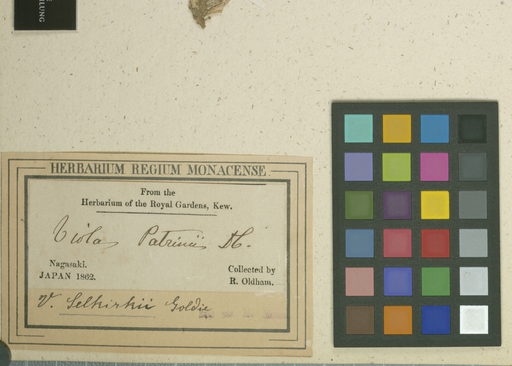 LUNG
HERBARIUM REGIUM MONACENSE.
From the
Herbarium of the Royal Gardens, Kew.
Viola Patrinii
Nagasaki.
JAPAN 1862.
Collected by
R. Oldham.
V. Selkirkii Goldie